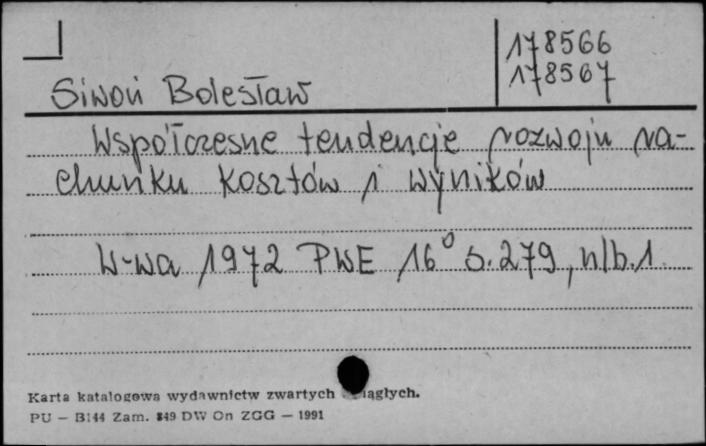 178566
178567
Siwoń Bolesław
Współczesne tendencje rozwoju ra-
chunku kosztów i wyników
W-wa 1972 PWE 16° s. 279, nlb. 1
Karta katalogowa wydawnictw zwartych iągłych.
PU — B144 Zam. 849 DW On ZGG — 1991